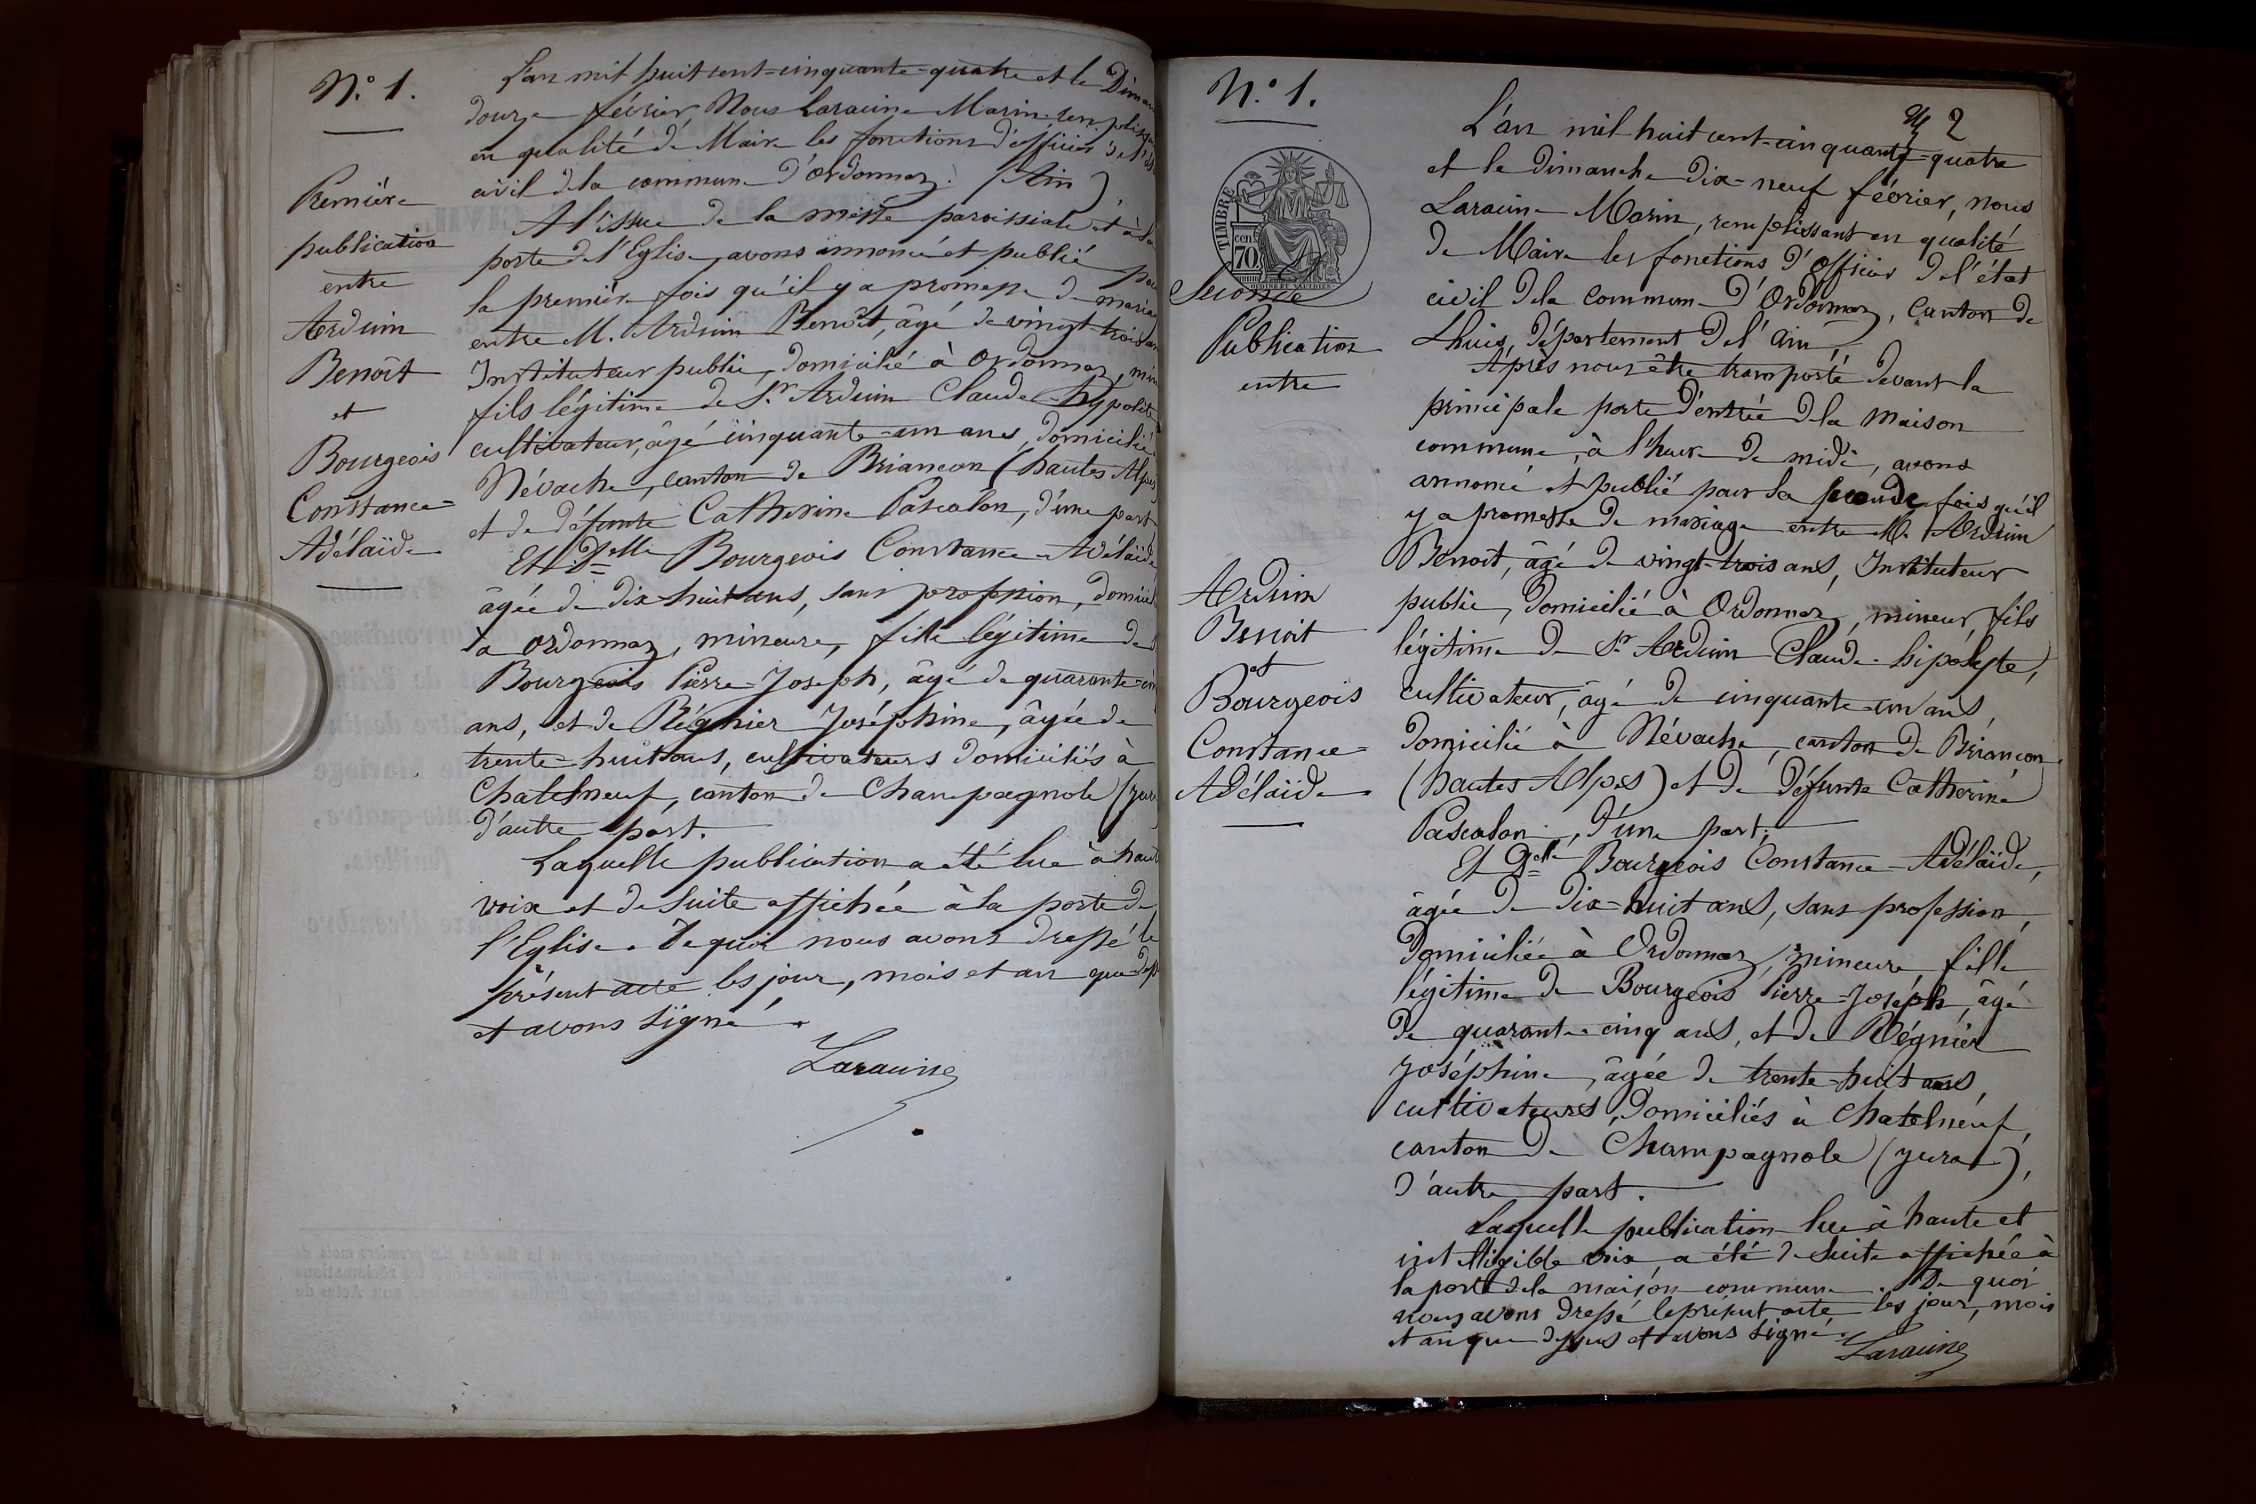 N.° 1.
Première
publication
entre
Arduin
Benoît
et
Bourgeois
Constance-
Adélaïde
L'an mil huit cent-cinquante-quatre et le Diman
douze février, Nous Laracine Marin remplissan
en qualité de Maire les fonctions d'officier de l'ét
civil de la commune d'Ordonnaz. (Ain)
A l'issue de la messe paroissiale et à la
porte de l'Eglise, avons annoncé et publié pour
la première fois qu'il y a promesse de maria
entre M. Arduin Benoît, âgé de vingt-trois an
Instituteur public, domicilié à Ordonnaz, min
fils légitime de S.r Arduin Claude-Hypolite
cultivateur, âgé cinquante-un ans, domicilié
Névache, canton de Briancon (hautes Alpes
et de défunte Catherine Pascalon, d'une part
Et D.elle Bourgeois Constance-Adélaïde
âgée de dix-huit ans, sans profession, domicil
à Ordonnaz, mineure, fille légitime de
Bourgeois Pierre-Joseph, âgé de quarante-cin
ans, et de Régnier Joséphine, âgée de
trente-huit ans, cultivateurs domiciliés à
Chatelneuf, canton de Champagnole (Jura
d'autre part.
Laquelle publication a été lue à haute
voix et de suite affichée à la porte de
l'Eglise. De quoi nous avons dressé le
présent acte les jour, mois et an que dess
et avons signé.
Laracine
N.° 1.
2
TIMBRE
cen.
70.
Seconde
Publication
entre
Arduin
Benoit
et
Bourgeois
Constance-
Adélaïde
L'an mil huit cent-cinquante-quatre
et le dimanche dix-neuf février, nous
Laracine Marin, remplissant en qualité
de Maire les fonctions d'officier de l'état
civil de la commune d'Ordonnaz, canton de
Lhuis, département de l'ain
Après nous être transporté devant la
principale porte d'entrée de la maison
commune, à l'heure de midi, avons
annoncé et publié pour la seconde fois qu'il
y a promesse de mariage entre M. Arduin
Benoît, âgé de vingt-trois ans, Instituteur
public, domicilié à Ordonnaz, mineur, fils
légitime de S.r Arduin Claude-hipolyte,
cultivateur, âgé de cinquante-un ans,
domicilié à Névache, canton de Briancon
(hautes Alpes) et de défunte Catherine
Pascalon, d'une part;
Et D.elle Bourgeois Constance-Adélaïde,
âgée de dix-huit ans, sans profession,
domiciliée à Ordonnaz, mineure, fille
légitime de Bourgeois Pierre-Joseph, âgé
de quarante-cinq ans, et de Régnier
Joséphine, âgée de trente-huit ans,
cultivateurs, domiciliés à Chatelneuf,
canton de Champagnole (Jura),
d'autre part.
Laquelle publication lue à haute et
intelligible voix, a été de suite affichée à
la porte de la maison commune. De quoi
nous avons dressé le présent acte les jour, mois
et an que dessus et avons signé.
Laracine